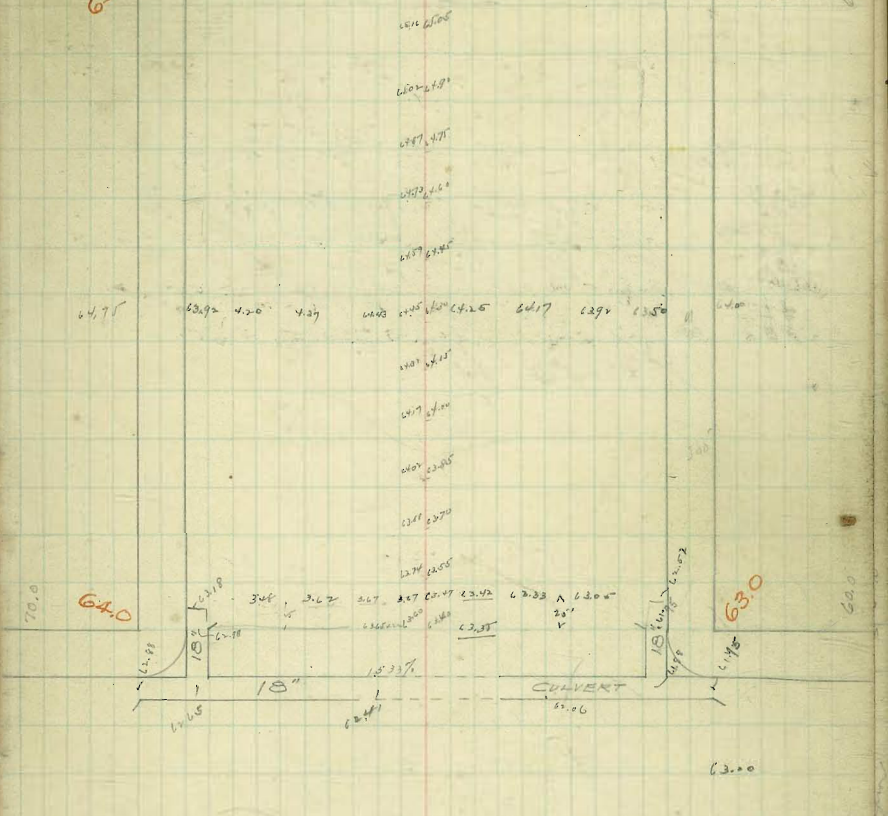 65.16 65.05
65.02 64.90
64.87 64.75
64.73 64.60
64.59 64.45
64.75 63.92 4.20 4.37 64.43 64.45 64.30 64.25 64.17 63.92 63.50 64.00
64.15
64.17 64.00
64.02 63.85
63.88 63.70
63.55
70.0 64.0 62.18 3.48 3.62 3.67 63.47 63.42 63.33 63.05 62.52 63.0 60.0
25'
18" 63.40 63.35 18"
62.88 61.88 61.95
1.533%
18" CULVERT
62.65 62.41 62.06
63.00